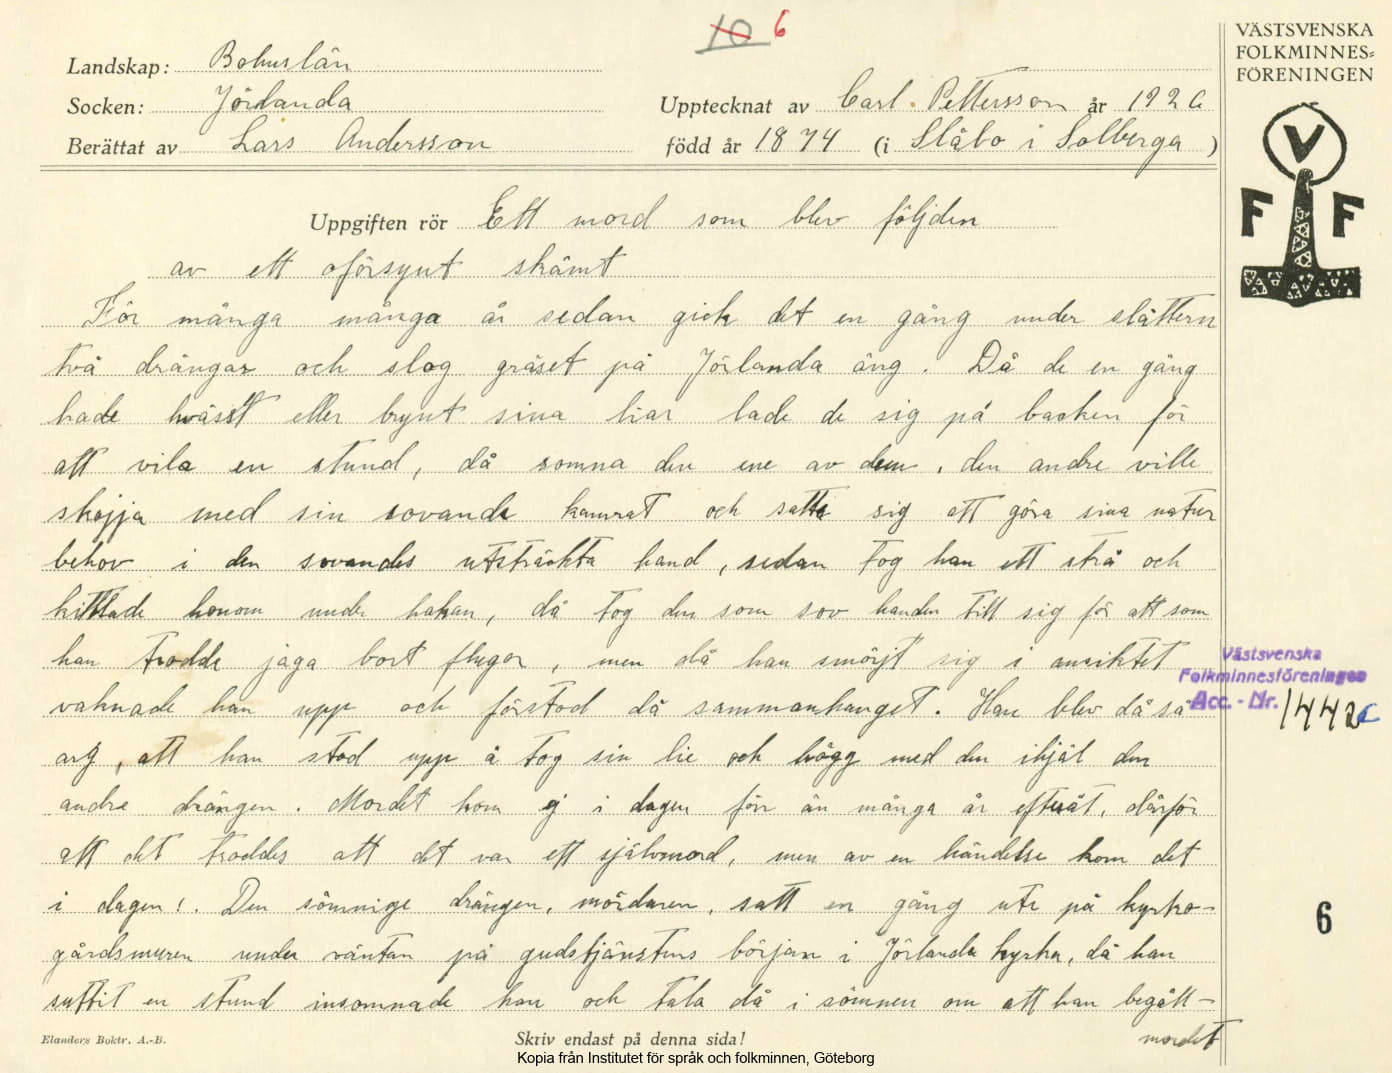 10 6
VÄSTSVENSKA
FOLKMINNES-
FÖRENINGEN
Landskap: Bohuslän
Socken: Jörlanda
Upptecknat av Carl Pettersson år 192
Berättat av Lars Andersson
född år 1874 (i Slåbo i Solberga )
V
F F
Uppgiften rör Ett mord som blev följden
av ett oförsynt skämt
För många många år sedan gick det en gång under slåttern
två drängar och slog gräset på Jörlanda äng. Då de en gång
hade hvässt eller brynt sina liar lade de sig på backen för
att vila en stund, då somna den ene av dem, den andre ville
skojja med sin sovande kamrat och satte sig att göra sina natur
behov i den sovandes utsträckta hand, sedan tog han ett strå och
kittlade honom under hakan, då tog den som sov handen till sig för att som
han trodde jaga bort flugor, men då han smörjt sig i ansiktet
vaknade han upp och förstod då sammanhanget. Han blev då så
arg, att han stod upp å tog sin lie och högg med den ihjäl den
andre drängen. Mordet kom ej i dagen förr än många år efteråt, därför
att det troddes att det var ett självmord, men av en händelse kom det
i dagen!. Den sömnige drängen, mördaren, satt en gång ute på kyrko-
gårdsmuren under väntan på gudstjänstens början i Jörlanda kyrka, då han
suttit en stund insomnade han och tala då i sömnen om att han begått-
mordet
Västsvenska
Folkminnesföreningen
Acc.-Nr. 1442 c
6
Elanders Boktr. A.-B.
Skriv endast på denna sida!
Kopia från Institutet för språk och folkminnen, Göteborg